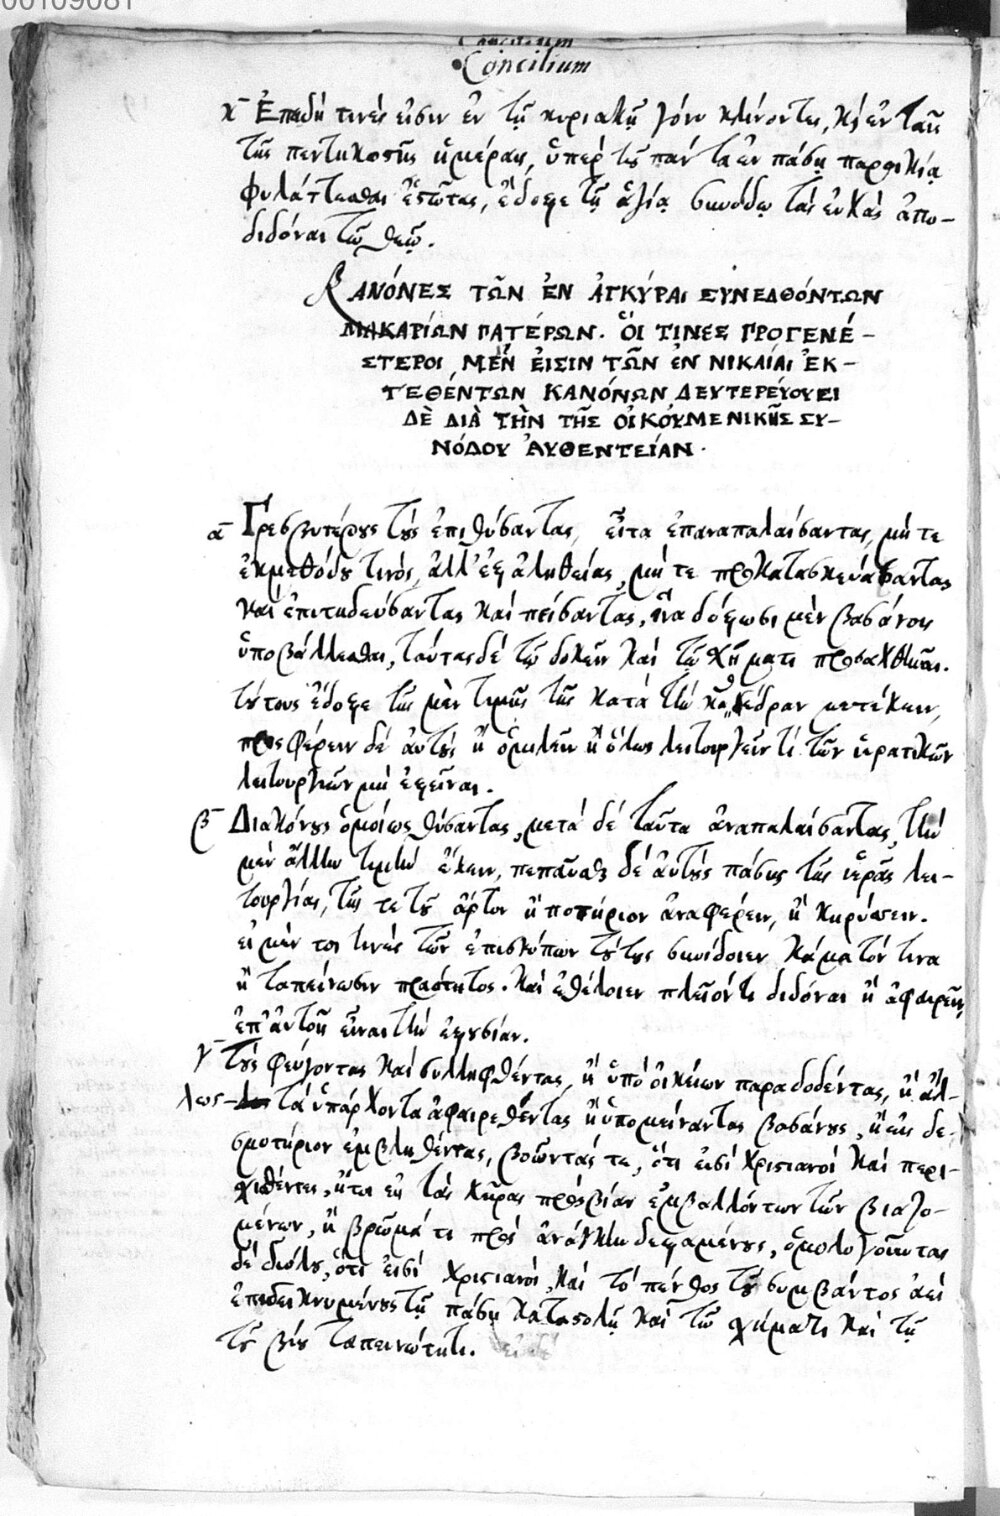 00109081
Concilium
Concilium
κ̅ Ἐπειδή τινές εἰσιν ἐν τῇ κυριακῇ γόνυ κλίνοντες, καὶ ἐν ταῖς
τῆς πεντηκοστῆς ἡμέραις, ὑπὲρ τοῦ πάντα ἐν πάσῃ παροικίᾳ
φυλάττεσθαι ἑστῶτας, ἔδοξε τῇ ἁγίᾳ συνόδῳ τὰς εὐχὰς ἀπο-
διδόναι τῷ θεῷ.
ΚΑΝΌΝΕΣ ΤΩ͂Ν ἘΝ ἈΓΚΎΡΑΙ ΣΥΝΕΛΘΌΝΤΩΝ
ΜΑΚΑΡΊΩΝ ΠΑΤΈΡΩΝ. ΟἽ ΤΙΝΕΣ ΠΡΟΓΕΝΈ-
ΣΤΕΡΟΙ ΜΈΝ ἘΙΣΙΝ ΤΩ͂Ν ἘΝ ΝΙΚΑΊΑΙ ἘΚ-
ΤΕΘΈΝΤΩΝ ΚΑΝΌΝΩΝ, ΔΕΥΤΕΡΕΎΟΥΣΙ
ΔῈ ΔΙᾺ ΤῊΝ ΤΗ͂Σ ΟἸΚΟΥΜΕΝΙΚΗ͂Σ ΣΥ-
ΝΌΔΟΥ ἈΥΘΕΝΤΕΊΑΝ.
α̅ Πρεσβυτέρους τοὺς ἐπιθύσαντας, εἶτα ἐπαναπαλαίσαντας, μήτε
ἐκ μεθόδου τινός, ἀλλ' ἐξ ἀληθείας, μήτε προκατασκευάσαντας
καὶ ἐπιτηδεύσαντας καὶ πείσαντας, ἵνα δόξωσι μὲν βασάνοις
ὑποβάλλεσθαι, ταύτας δὲ τῷ δοκεῖν καὶ τῷ σχήματι προσαχθῆναι.
τούτους ἔδοξε τῆς μὲν τιμῆς τῆς κατὰ τὴν καθέδραν μετέχειν,
προσφέρειν δὲ αὐτοὺς ἢ ὁμιλεῖν ἢ ὅλως λειτουργεῖν τι τῶν ἱερατικῶν
λειτουργιῶν μὴ ἐξεῖναι.
β̅ Διακόνους ὁμοίως θύσαντας, μετὰ δὲ ταῦτα ἀναπαλαίσαντας, τὴν
μὲν ἄλλην τιμὴν ἔχειν, πεπαῦσθαι δὲ αὐτοὺς πάσης τῆς ἱερᾶς λει-
τουργίας, τῆς τε τοῦ ἄρτον ἢ ποτήριον ἀναφέρειν, ἢ κηρύσσειν.
εἰ μέν τοι τινὲς τῶν ἐπισκόπων τούτοις συνίδοιεν κάματόν τινα
ἢ ταπείνωσιν πραότητος. καὶ ἐθέλοιεν πλεῖόν τι διδόναι ἢ ἀφαιρεῖν,
ἐπ' αὐτοῖς εἶναι τὴν ἐξουσίαν.
γ̅ Τοὺς φεύγοντας καὶ συλληφθέντας, ἢ ὑπὸ οἰκείων παραδοθέντας, ἢ ἄλ-
λως τὰ ὑπάρχοντα ἀφαιρεθέντας ἢ ὑπομείναντας βασάνους, ἢ εἰς δε-
σμωτήριον ἐμβληθέντας, βοῶντάς τε, ὅτι εἰσὶ Χριστιανοὶ καὶ περι-
σχισθέντας, ἤτοι εἰς τὰς χεῖρας πρὸς βίαν ἐμβαλλόντων τῶν βιαζο-
μένων, ἢ βρῶμά τι πρὸς ἀνάγκην δεξαμένους, ὁμολογοῦντας
δὲ διόλου, ὅτι εἰσὶ Χριστιανοί, καὶ τὸ πένθος τοῦ συμβάντος ἀεὶ
ἐπιδεικνυμένους τῇ πάσῃ καταστολῇ καὶ τῷ σχήματι καὶ τῇ
τοῦ βίου ταπεινότητι.